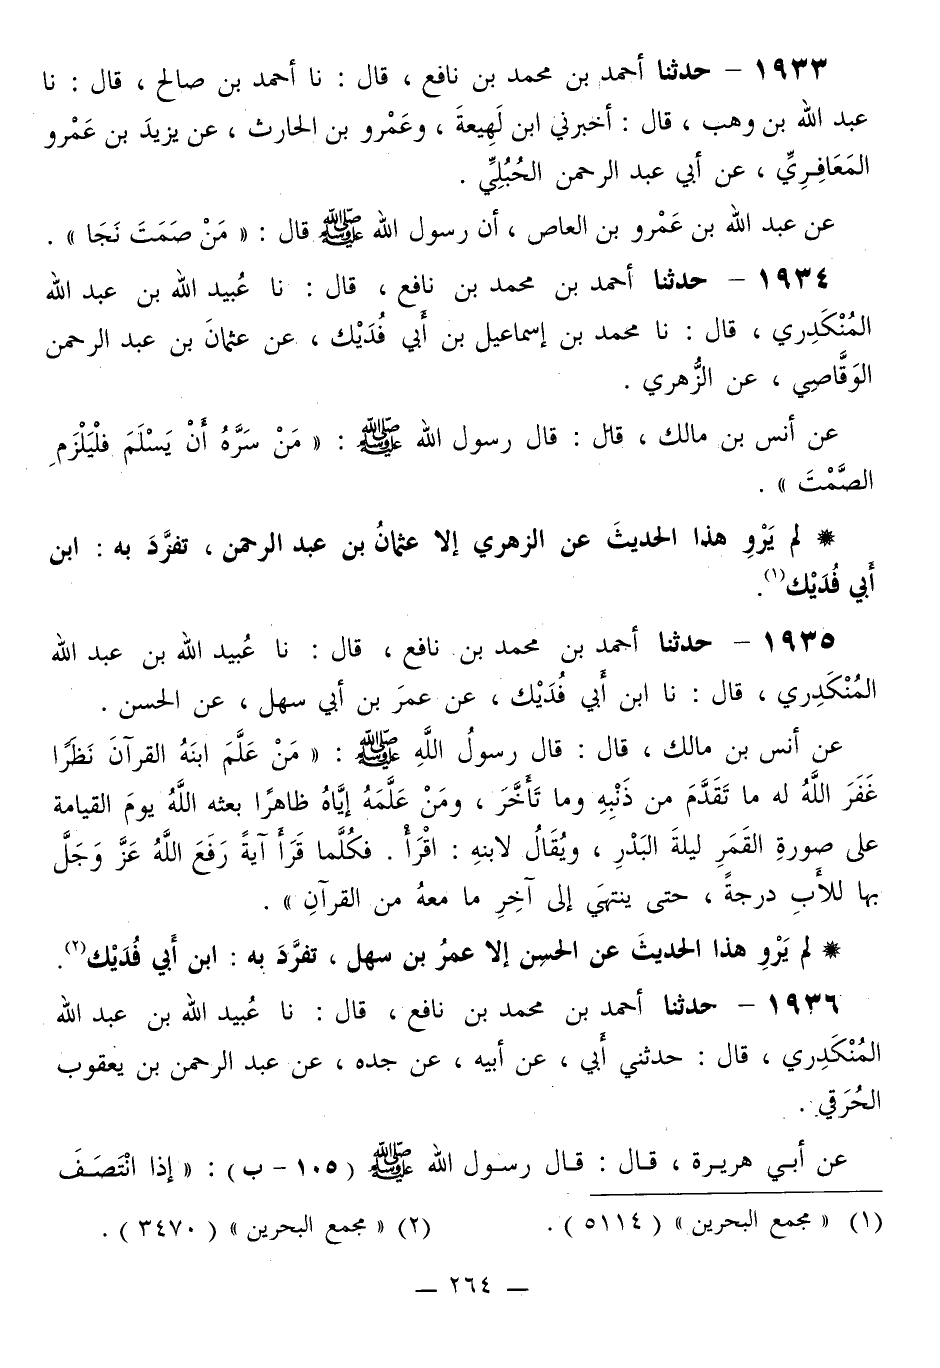 ١٩٣٣ – حدثنا أحمد بن محمد بن نافع ، قال : نا أحمد بن صالح ، قال : نا
عبد الله بن وهب ، قال : أخبرني ابن لَهِيعةَ ، وعَمْرو بن الحارث ، عن يزيدَ بن عَمْرو
المَعَافِرِيِّ ، عن أبي عبد الرحمن الحُبُلِيِّ .
عن عبد الله بن عَمْرو بن العاص ، أن رسول الله ﷺ قال : « مَنْ صَمَتَ نَجَا » .
١٩٣٤ – حدثنا أحمد بن محمد بن نافع ، قال : نا عُبيد الله بن عبد الله
المُنْكَدِري ، قال : نا محمد بن إسماعيل بن أَبي فُدَيْك ، عن عثمانَ بن عبد الرحمن
الوَقَّاصِي ، عن الزُّهري .
عن أنس بن مالك ، قال : قال رسول الله ﷺ : « مَنْ سَرَّهُ أَنْ يَسْلَمَ فلْيَلْزَمِ
الصَّمْتَ » .
* لم يَرْوِ هذا الحديثَ عن الزهري إلا عثمانُ بن عبد الرحمن ، تفرَّدَ به : ابن
أَبي فُدَيْك(١).
١٩٣٥ – حدثنا أحمد بن محمد بن نافع ، قال : نا عُبيد الله بن عبد الله
المُنْكَدِري ، قال : نا ابن أَبي فُدَيْك ، عن عمرَ بن أبي سهل ، عن الحسن .
عن أنس بن مالك ، قال : قال رسولُ اللَّهِ ﷺ : « مَنْ عَلَّمَ ابنَهُ القرآنَ نَظَرًا
غَفَرَ اللَّهُ له ما تَقَدَّمَ من ذَنْبِهِ وما تَأَخَّرَ ، ومَنْ عَلَّمَهُ إيَّاهُ ظاهرًا بعثه اللَّهُ يومَ القيامة
على صورةِ القَمَرِ ليلةَ البَدْرِ ، ويُقَالُ لابنهِ : اقْرَأْ . فكُلَّما قَرَأَ آيةً رَفَعَ اللَّهُ عَزَّ وَجَلَّ
بها للأَبِ درجةً ، حتى ينتهَي إلى آخِرِ ما معهُ من القرآنِ » .
* لم يَرْوِ هذا الحديثَ عن الحسنِ إلا عمرُ بن سهل ، تفرَّدَ به : ابن أَبي فُدَيْك(٢).
١٩٣٦ – حدثنا أحمد بن محمد بن نافع ، قال : نا عُبيد الله بن عبد الله
المُنْكَدِري ، قال : حدثني أَبي ، عن أبيه ، عن جده ، عن عبد الرحمن بن يعقوب
الحُرَقي .
عن أبي هريرة ، قال : قال رسول الله ﷺ (١٠٥ – ب) : « إذا انْتَصَفَ
(١) « مجمع البحرين » (٥١١٤) . (٢) « مجمع البحرين » (٣٤٧٠) .
— ٢٦٤ —